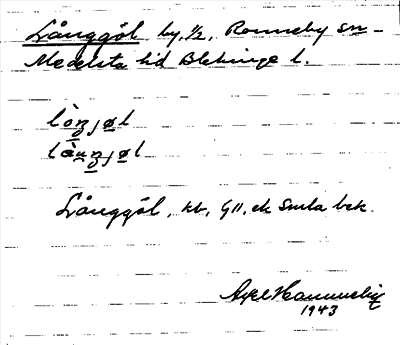 Långgöl by, 1/2, Ronneby sn –
Medelsta hd Blekinge l.
lòŋjøl
làuŋjøl
Långgöl, kb, GII, ek Smla bek.
Axel
1943